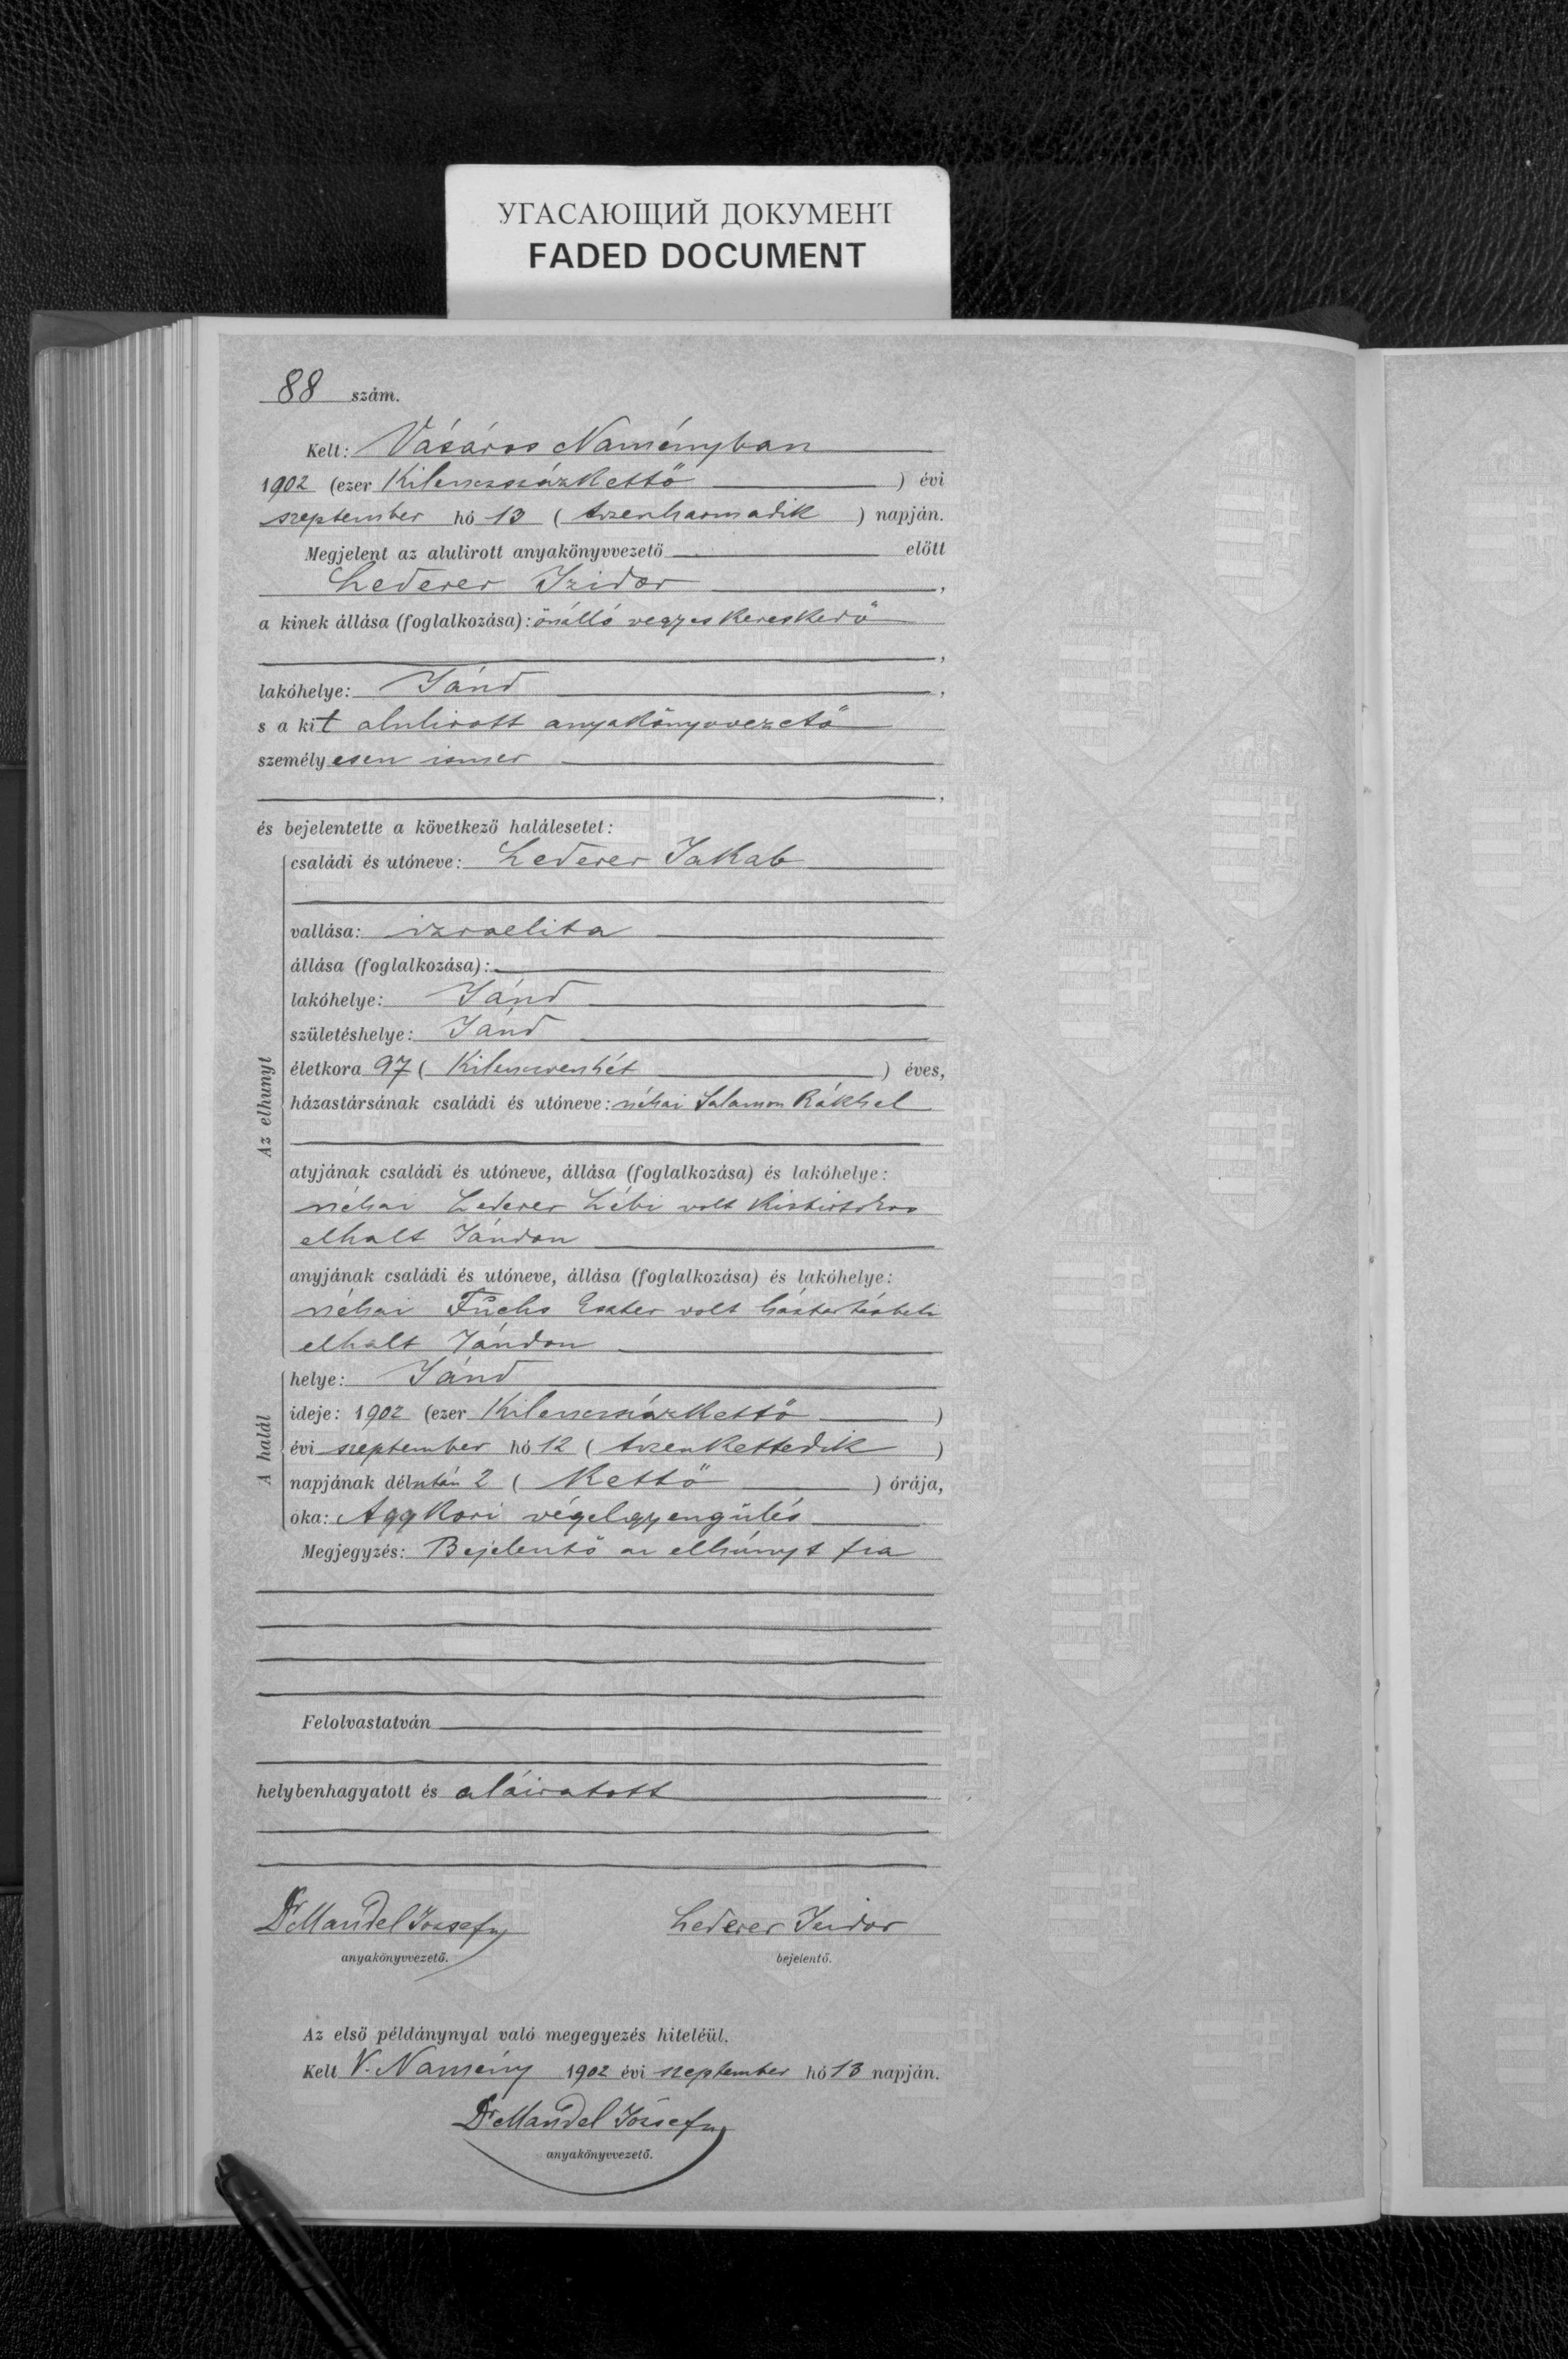 УГАСАЮЩИЙ ДОКУМЕНТ
FADED DOCUMENT
88 szám.
Kelt: Vásáros Naményban
1902 (ezer Kilenczszázkettő ) évi
szeptember hó 13 ( tizenharmadik ) napján.
Megjelent az alulirott anyakönyvvezető előtt
Lederer Izidor,
a kinek állása (foglalkozása): önálló vegyeskereskedő
,
lakóhelye: Jánd,
s a kit alulirott anyakönyvvezető
személyesen ismer
,
és bejelentette a következő halálesetet:
Az elhunyt
családi és utóneve: Lederer Jakab
vallása: izraelita
állása (foglalkozása):
lakóhelye: Jánd
születéshelye: Jánd
életkora 97 ( Kilenczvenhét ) éves,
házastársának családi és utóneve: néhai Salamon Rákhel
atyjának családi és utóneve, állása (foglalkozása) és lakóhelye:
néhai Lederer Lébi volt kisbirtokos
elhalt Jándon
anyjának családi és utóneve, állása (foglalkozása) és lakóhelye:
néhai Fuchs Eszter volt háztartásbeli
elhalt Jándon
A halál
helye: Jánd
ideje: 1902 (ezer Kilenczszázkettő )
évi szeptember hó 12 ( tizenkettedik )
napjának délután 2 ( Kettő ) órája,
oka: Aggkori végelgyengülés
Megjegyzés: Bejelentő az elhúnyt fia
Felolvastatván
helybenhagyatott és aláiratott
Dr Mandel József
anyakönyvvezető.
Lederer Izidor
bejelentő.
Az első példánynyal való megegyezés hiteléül.
Kelt V. Namény 1902 évi szeptember hó 13 napján.
Dr Mandel József
anyakönyvvezető.